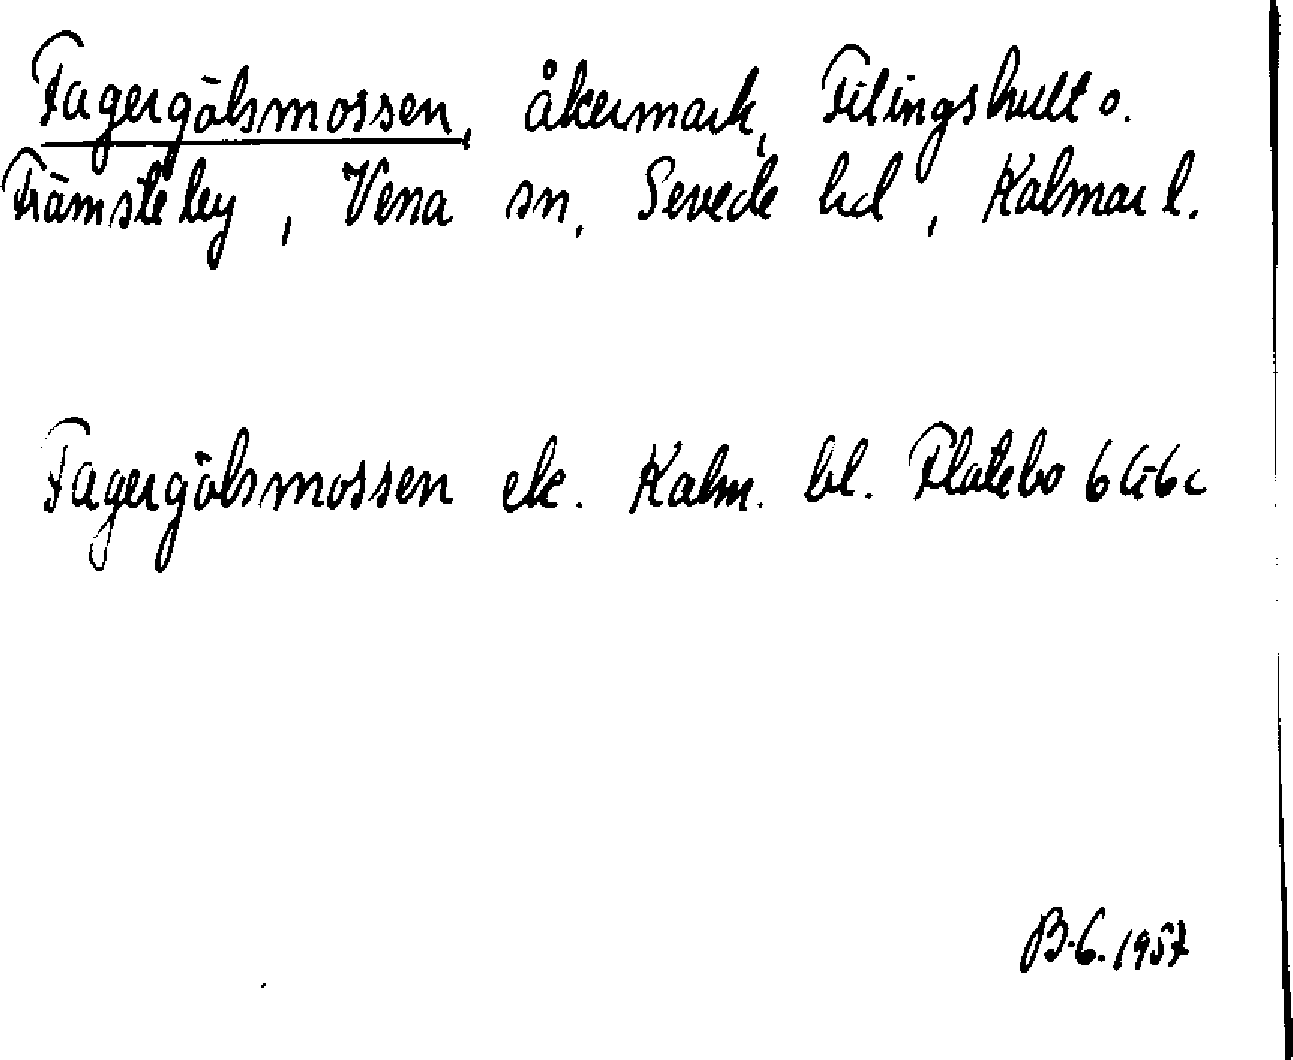 Fagergölsmossen, åkermark, Filingshult o.
Främsteby, Vena sn, Sevede hd, Kalmar l.
Fagergölsmossen ek. Kalm. bl. Flatebo 6G6c
B.G. 1957